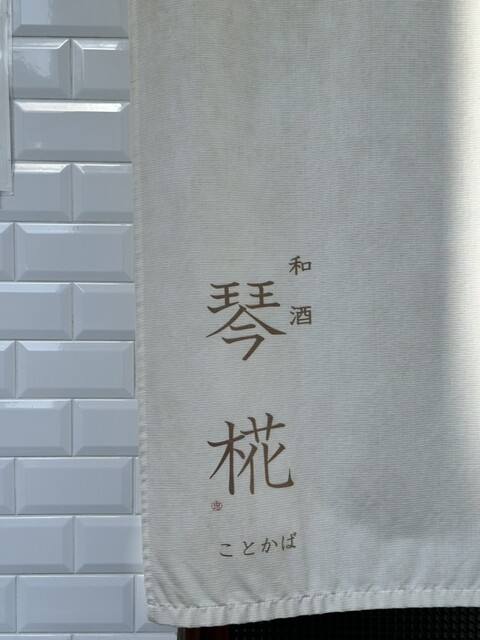 和酒
琴椛
ことかば